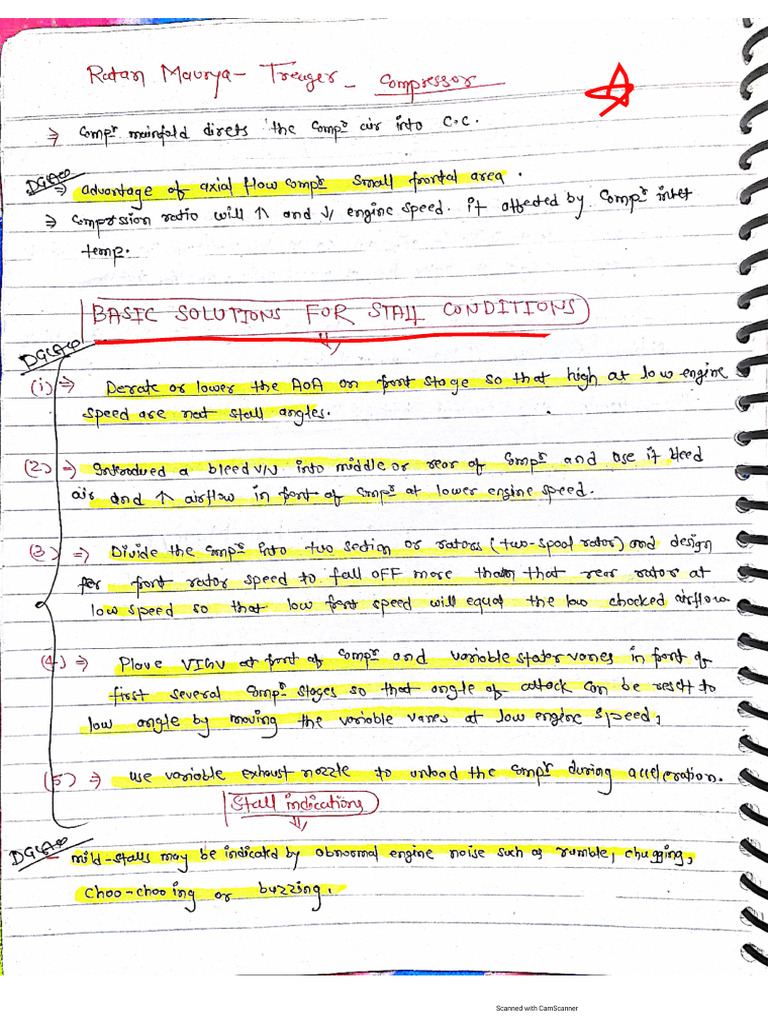 Ratan Maurya - Treager - Compressor
⇒ Compr mainfold direts the compr air into C.C.
DGCA
⇒ advantage of axial flow compr small frontal area.
⇒ Comprssion ratio will ↑ and ↓ engine speed. it affected by Compr inlet
temp.
BASIC SOLUTIONS FOR STALL CONDITIONS
DGCA
(1) ⇒ Derate or lower the AoA on front stage so that high at low engine
speed are not stall angles.
(2) ⇒ Introduced a bleed V/V into middle or rear of Compr and use it bleed
air and ↑ airflow in font of compr at lower engine speed.
(3) ⇒ Divide the Compr into two section or rators (two-spool rator) and design
for font rator speed to fall OFF more than that rear rator at
low speed so that low font speed will equal the low chocked airflow
(4) ⇒ Plave VIGV at font of compr and variable stator vanes in font of
first several compr stages so that angle of attack can be resett to
low angle by moving the variable vanes at low engine speed,
(5) ⇒ use variable exhaust nozzle to unload the compr during acceleration.
Stall indications
DGCA
- mild-stalls may be indicated by abnormal engine noise such as rumble, chugging,
choo-chooing or buzzing.
Scanned with CamScanner